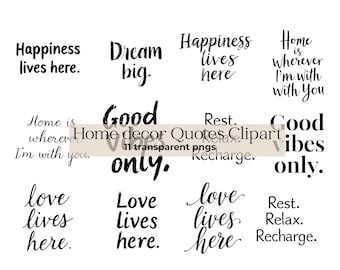 Happiness
lives here.
Dream
big.
Happiness
lives
here
Home
is
wherever
I'm with
with You
Home is
wherever
I'm with you.
Good
Vibes
only.
Rest.
Relax.
Recharge.
Good
vibes
only.
Home decor Quotes Clipart
11 transparent pngs
love
lives
here.
Love
lives
here.
love
lives
here
Rest.
Relax.
Recharge.